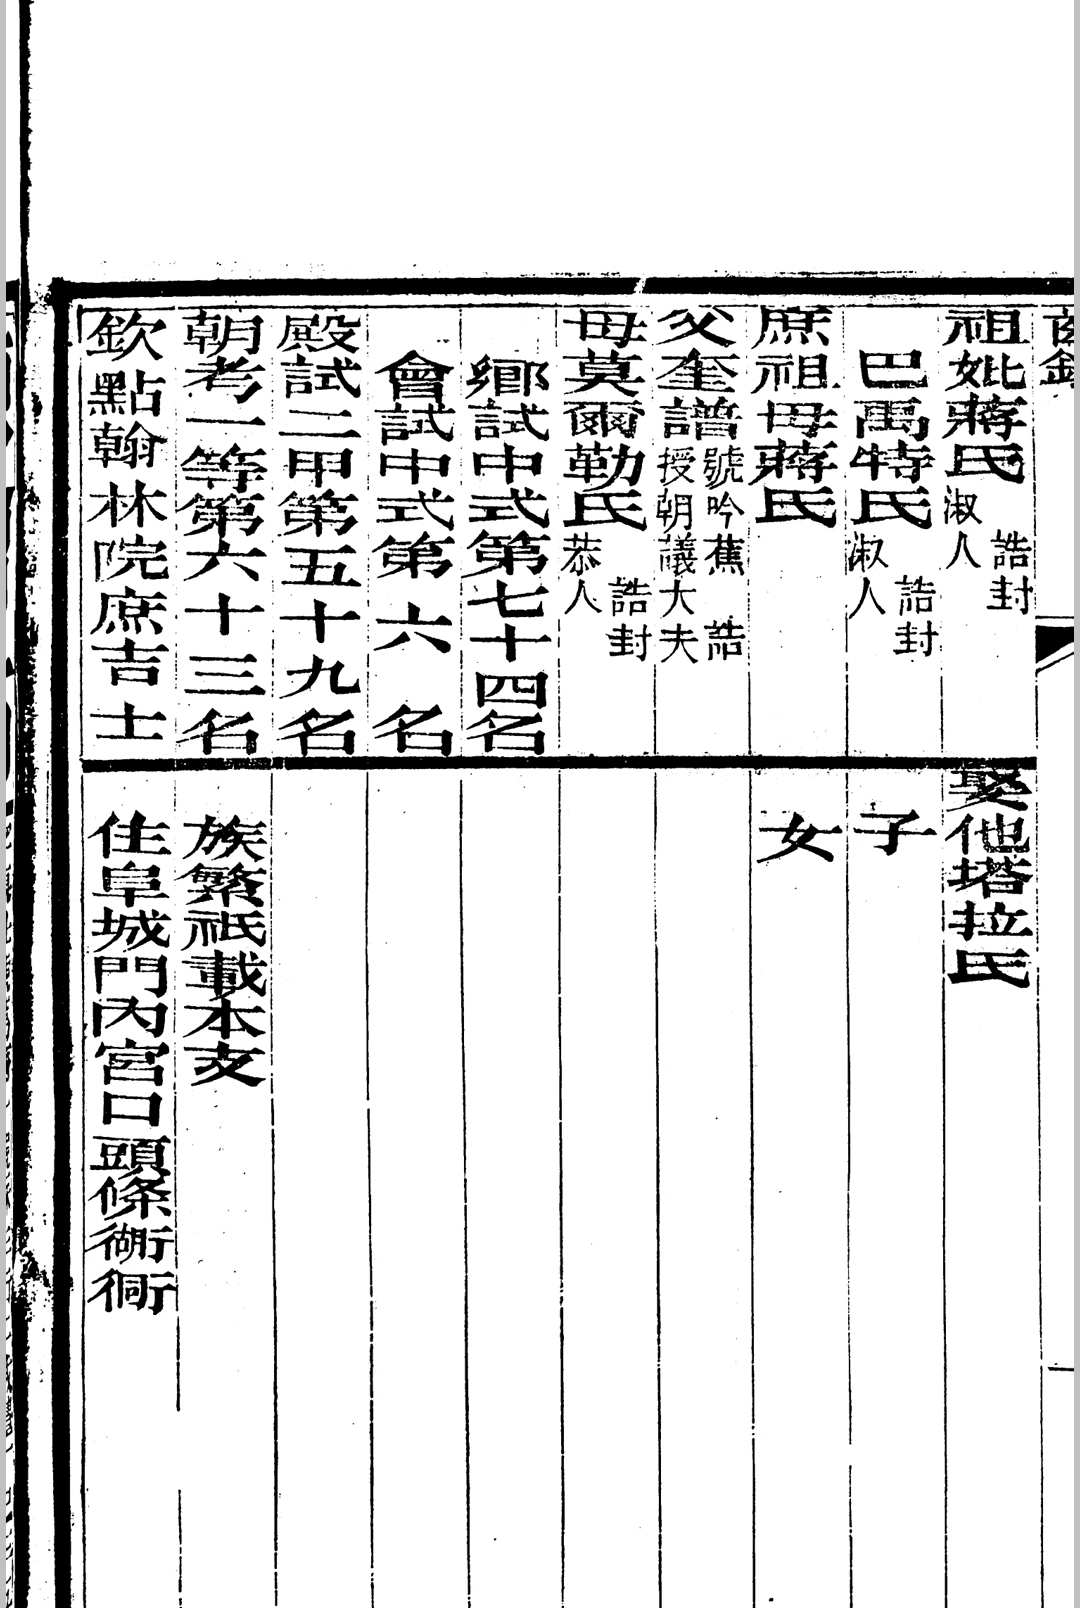 祖妣蔣氏 誥封淑人
巴禹特氏 誥封淑人
庶祖母蔣氏
父奎譜 號吟蕉 誥授朝議大夫
母莫爾勒氏 誥封恭人
鄉試中式第七十四名
會試中式第六名
殿試二甲第五十九名
朝考一等第六十三名
欽點翰林院庶吉士
娶他塔拉氏
子
女
族繁祇載本支
住阜城門內宮口頭條衚衕